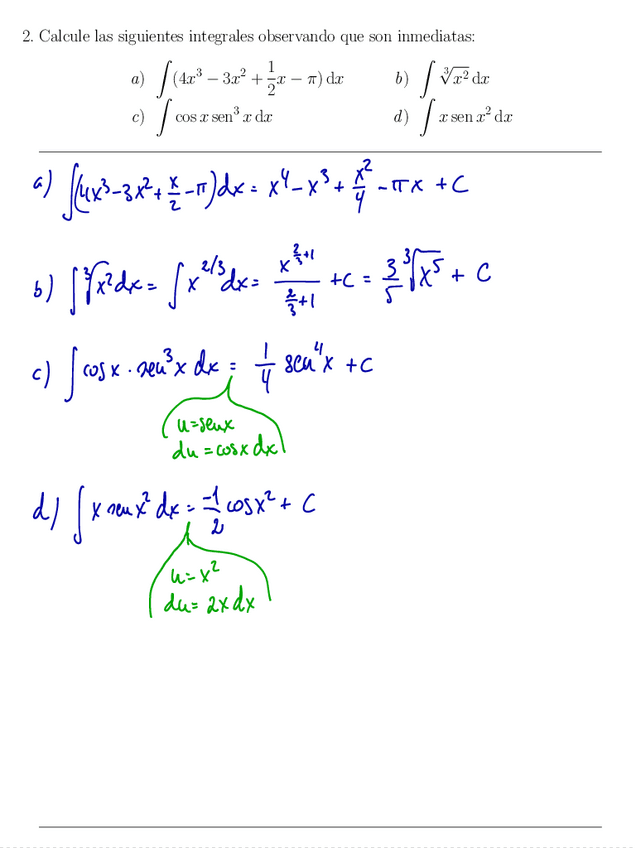 2. Calcule las siguientes integrales observando que son inmediatas:
a) ∫(4x³ − 3x² + 1/2 x − π) dx b) ∫ ∛x² dx
c) ∫ cos x sen³ x dx d) ∫ x sen x² dx
a) ∫(4x³-3x²+x/2-π)dx = x⁴-x³+x²/4-πx+C
b) ∫∛x² dx = ∫x^(2/3) dx = x^(2/3+1)/(2/3+1) +C = 3/5 ∛x⁵ + C
c) ∫cosx · sen³x dx = 1/4 sen⁴x +C
u=senx
du=cosx dx
d) ∫x sen x² dx = -1/2 cosx² + C
u=x²
du= 2x dx